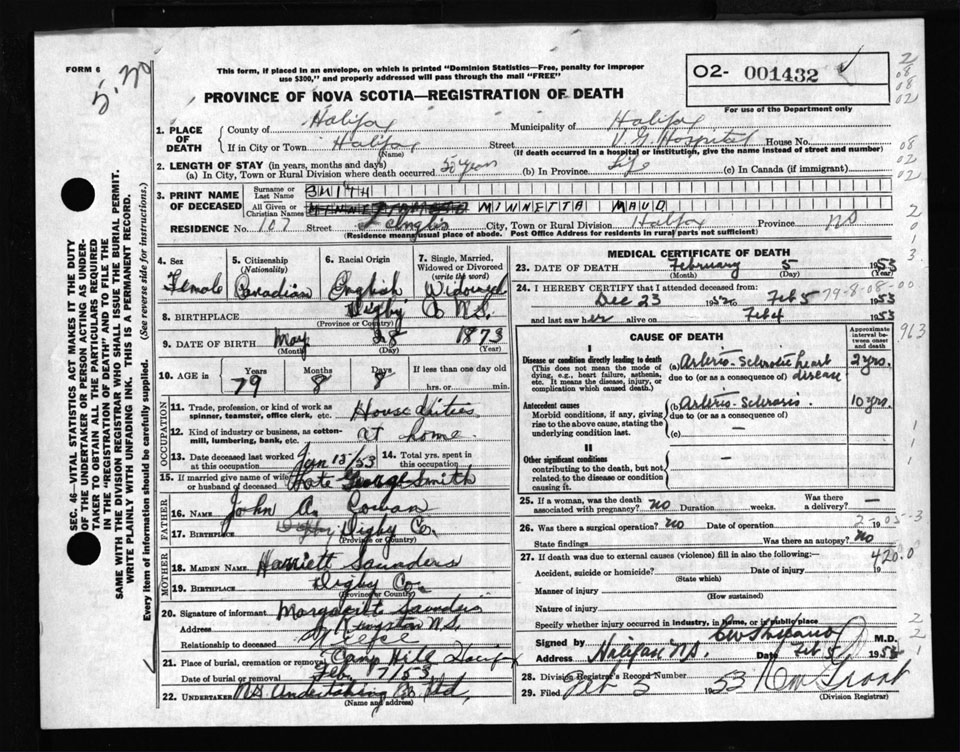 FORM 6
5.20
This form, if placed in an envelope, on which is printed "Dominion Statistics—Free, penalty for improper
use $300," and properly addressed will pass through the mail "FREE"
PROVINCE OF NOVA SCOTIA—REGISTRATION OF DEATH
O2- 001432
For use of the Department only
1. PLACE OF DEATH
County of Halifax Municipality of Halifax
If in City or Town Halifax Street V.G. Hospital House No.
(Name) (If death occurred in a hospital or institution, give the name instead of street and number)
2. LENGTH OF STAY (in years, months and days)
(a) In City, Town or Rural Division where death occurred 50 years (b) In Province Life (c) In Canada (if immigrant)
3. PRINT NAME OF DECEASED
Surname or Last Name SMITH
All Given or Christian Names MINNETTA MAUD
RESIDENCE No. 107 Street City, Town or Rural Division Halifax Province NS
(Residence means usual place of abode. Post Office Address for residents in rural parts not sufficient)
4. Sex Female
5. Citizenship (Nationality) Canadian
6. Racial Origin English
7. Single, Married, Widowed or Divorced (write the word) Widowed
8. BIRTHPLACE Digby Co N.S.
(Province or Country)
9. DATE OF BIRTH May 28 1873
(Month) (Day) (Year)
10. AGE in Years 79 Months 8 Days 8 If less than one day old
hrs. or min.
OCCUPATION
11. Trade, profession, or kind of work as spinner, teamster, office clerk, etc. House duties
12. Kind of industry or business, as cotton-mill, lumbering, bank, etc. at home
13. Date deceased last worked at this occupation Jan 15/53
14. Total yrs. spent in this occupation
15. If married give name of wife or husband of deceased Late George Smith
FATHER
16. NAME John A. Cowan
17. BIRTHPLACE Digby Co.
(Province or Country)
MOTHER
18. MAIDEN NAME Harriett Saunders
19. BIRTHPLACE Digby Co.
(Province or Country)
20. Signature of informant Margaret Saunders
Address Kingston N.S.
Relationship to deceased Niece
21. Place of burial, cremation or removal Camp Hill Halifax
Date of burial or removal Feb. 7/53
22. UNDERTAKER N.S. Undertaking Co. Ltd
(Name and address)
MEDICAL CERTIFICATE OF DEATH
23. DATE OF DEATH February 5 1953
(Month) (Day) (Year)
24. I HEREBY CERTIFY that I attended deceased from:
Dec 23 1952 to Feb 5 1953
79-8-08-00
and last saw her alive on Feb 4 1953
CAUSE OF DEATH
Approximate interval between onset and death
I
Disease or condition directly leading to death
(This does not mean the mode of dying, e.g., heart failure, asthenia, etc. It means the disease, injury, or complication which caused death.)
(a) Arterio-Sclerotic heart disease 2 yrs.
due to (or as a consequence of)
Antecedent causes
Morbid conditions, if any, giving rise to the above cause, stating the underlying condition last.
(b) Arterio-Sclerosis. 10 yrs.
due to (or as a consequence of)
(c) —
II
Other significant conditions
contributing to the death, but not related to the disease or condition causing it.
—
25. If a woman, was the death associated with pregnancy? no Duration weeks. Was there a delivery? —
26. Was there a surgical operation? no Date of operation 19
State findings Was there an autopsy? No
27. If death was due to external causes (violence) fill in also the following:— 420.0
Accident, suicide or homicide? Date of injury 19
(State which)
Manner of injury
(How sustained)
Nature of injury
Specify whether injury occurred in industry, in home, or in public place
Signed by M.D.
Address Halifax N.S. Date Feb 5 1953
28. Division Registrar's Record Number
29. Filed Feb 5 1953
(Division Registrar)
SEC. 46—VITAL STATISTICS ACT MAKES IT THE DUTY
OF THE UNDERTAKER OR PERSON ACTING AS UNDER-
TAKER TO OBTAIN ALL THE PARTICULARS REQUIRED
IN THE "REGISTRATION OF DEATH" AND TO FILE THE
SAME WITH THE DIVISION REGISTRAR WHO SHALL ISSUE THE BURIAL PERMIT.
WRITE PLAINLY WITH UNFADING INK. THIS IS A PERMANENT RECORD.
Every item of information should be carefully supplied. (See reverse side for instructions.)